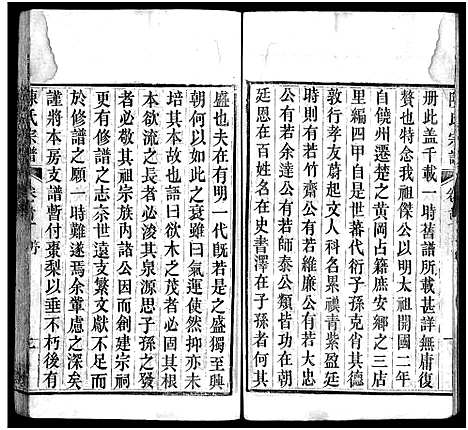 陳氏宗譜
册此蓋千載一時舊譜所載甚詳無庸復
贅也特念我祖傑公以明太祖開國二年
自饒州遷楚之黄岡占籍庶安鄉之三店
里編四甲自是世蕃代衍子孫克肖其士
敦行孝友蔚起文人科名纍禩青紫盈廷
時則有若竹齋公有若維廉公有若大忠
公有若余達公有若師泰公類皆功在朝
廷恩在於民名在史書澤在子孫者何其
盛也夫在有明一代既若是之盛獨至興
朝何以之衰雖曰氣運使然抑亦未
培其本故也語曰欲木之茂者必固其根
本欲流之長者必浚其泉源思子孫之發
者必敬其祖宗族内諸公因而創建宗祠
更有欲修譜之志奈世遠支繁文獻不足
於修譜之願一時難遂焉余羣慮之深矣
謹將本房支譜暫付棗梨以垂不朽後有
陳氏宗譜
卷首
序